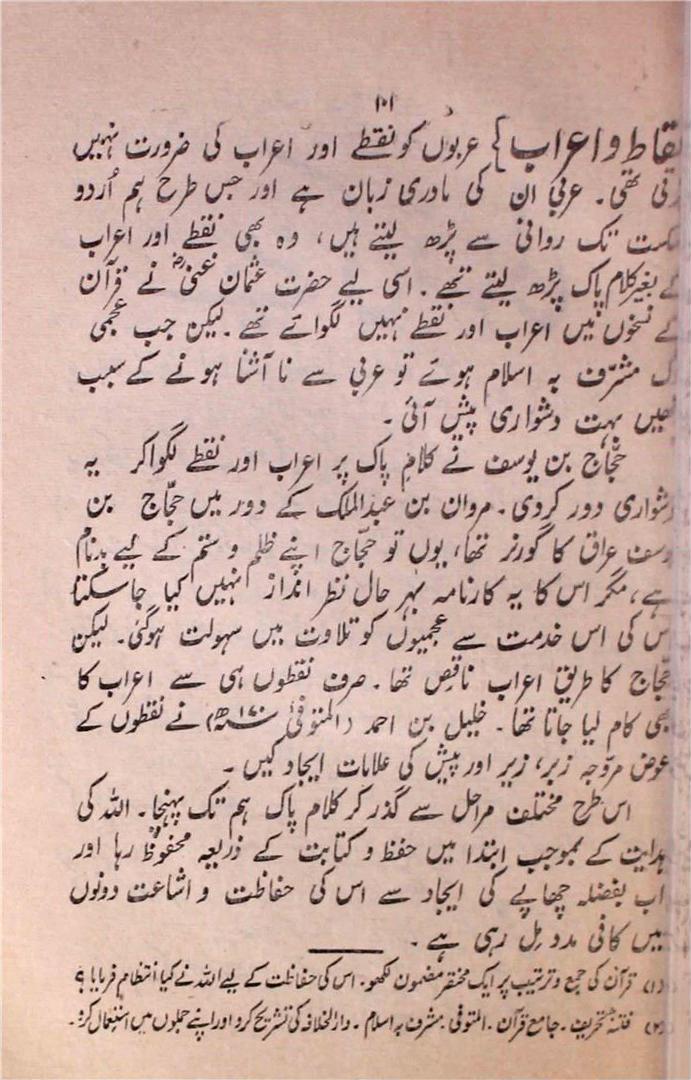 ۱۰۱
نقاط و اعراب} عربوں کو نقطے اور اعراب کی ضرورت نہیں
تھی۔ عربی ان کی مادری زبان ہے اور جس طرح ہم اُردو
تک روانی سے پڑھ لیتے ہیں، وہ بھی نقطے اور اعراب
کے بغیر کلام پاک پڑھ لیتے تھے۔ اسی لیے حضرت عثمان غنیؓ نے قرآن
کے نسخوں میں اعراب اور نقطے نہیں لگوائے تھے۔ لیکن جب عجمی
مشرّف بہ اسلام ہوئے تو عربی سے نا آشنا ہونے کے سبب
بہت دشواری پیش آئی۔
حجّاج بن یوسف نے کلامِ پاک پر اعراب اور نقطے لگوا کر یہ
دشواری دور کردی۔ مروان بن عبدالملک کے دور میں حجّاج بن
یوسف عراق کا گورنر تھا، یوں تو حجّاج اپنے ظلم و ستم کے لیے بدنام
ہے، مگر اس کا یہ کارنامہ بہر حال نظر انداز نہیں کیا جاسکتا
اس کی اس خدمت سے عجمیوں کو تلاوت میں سہولت ہوگئی۔ لیکن
حجّاج کا طریقِ اعراب ناقص تھا۔ صرف نقطوں ہی سے اعراب کا
بھی کام لیا جاتا تھا۔ خلیل بن احمد (المتوفیٰ ۱۷۰ھ) نے نقطوں کے
عوض مروّجہ زبر، زیر اور پیش کی علامات ایجاد کیں۔
اس طرح مختلف مراحل سے گذر کر کلام پاک ہم تک پہنچا۔ اللہ کی
ہدایت کے بموجب ابتدا میں حفظ و کتابت کے ذریعہ محفوظ رہا اور
اب بفضلہ چھاپے کی ایجاد سے اس کی حفاظت و اشاعت دونوں
میں کافی مدد مل رہی ہے۔
(۱) قرآن کی جمع و ترتیب پر ایک مختصر مضمون لکھو۔ اس کی حفاظت کے لیے اللہ نے کیا انتظام فرمایا؟
(۲) فتنۂ تحریف۔ جامع قرآن۔ المتوفی۔ مشرف بہ اسلام۔ دارالخلافہ کی تشریح کرو اور اپنے جملوں میں استعمال کرو۔